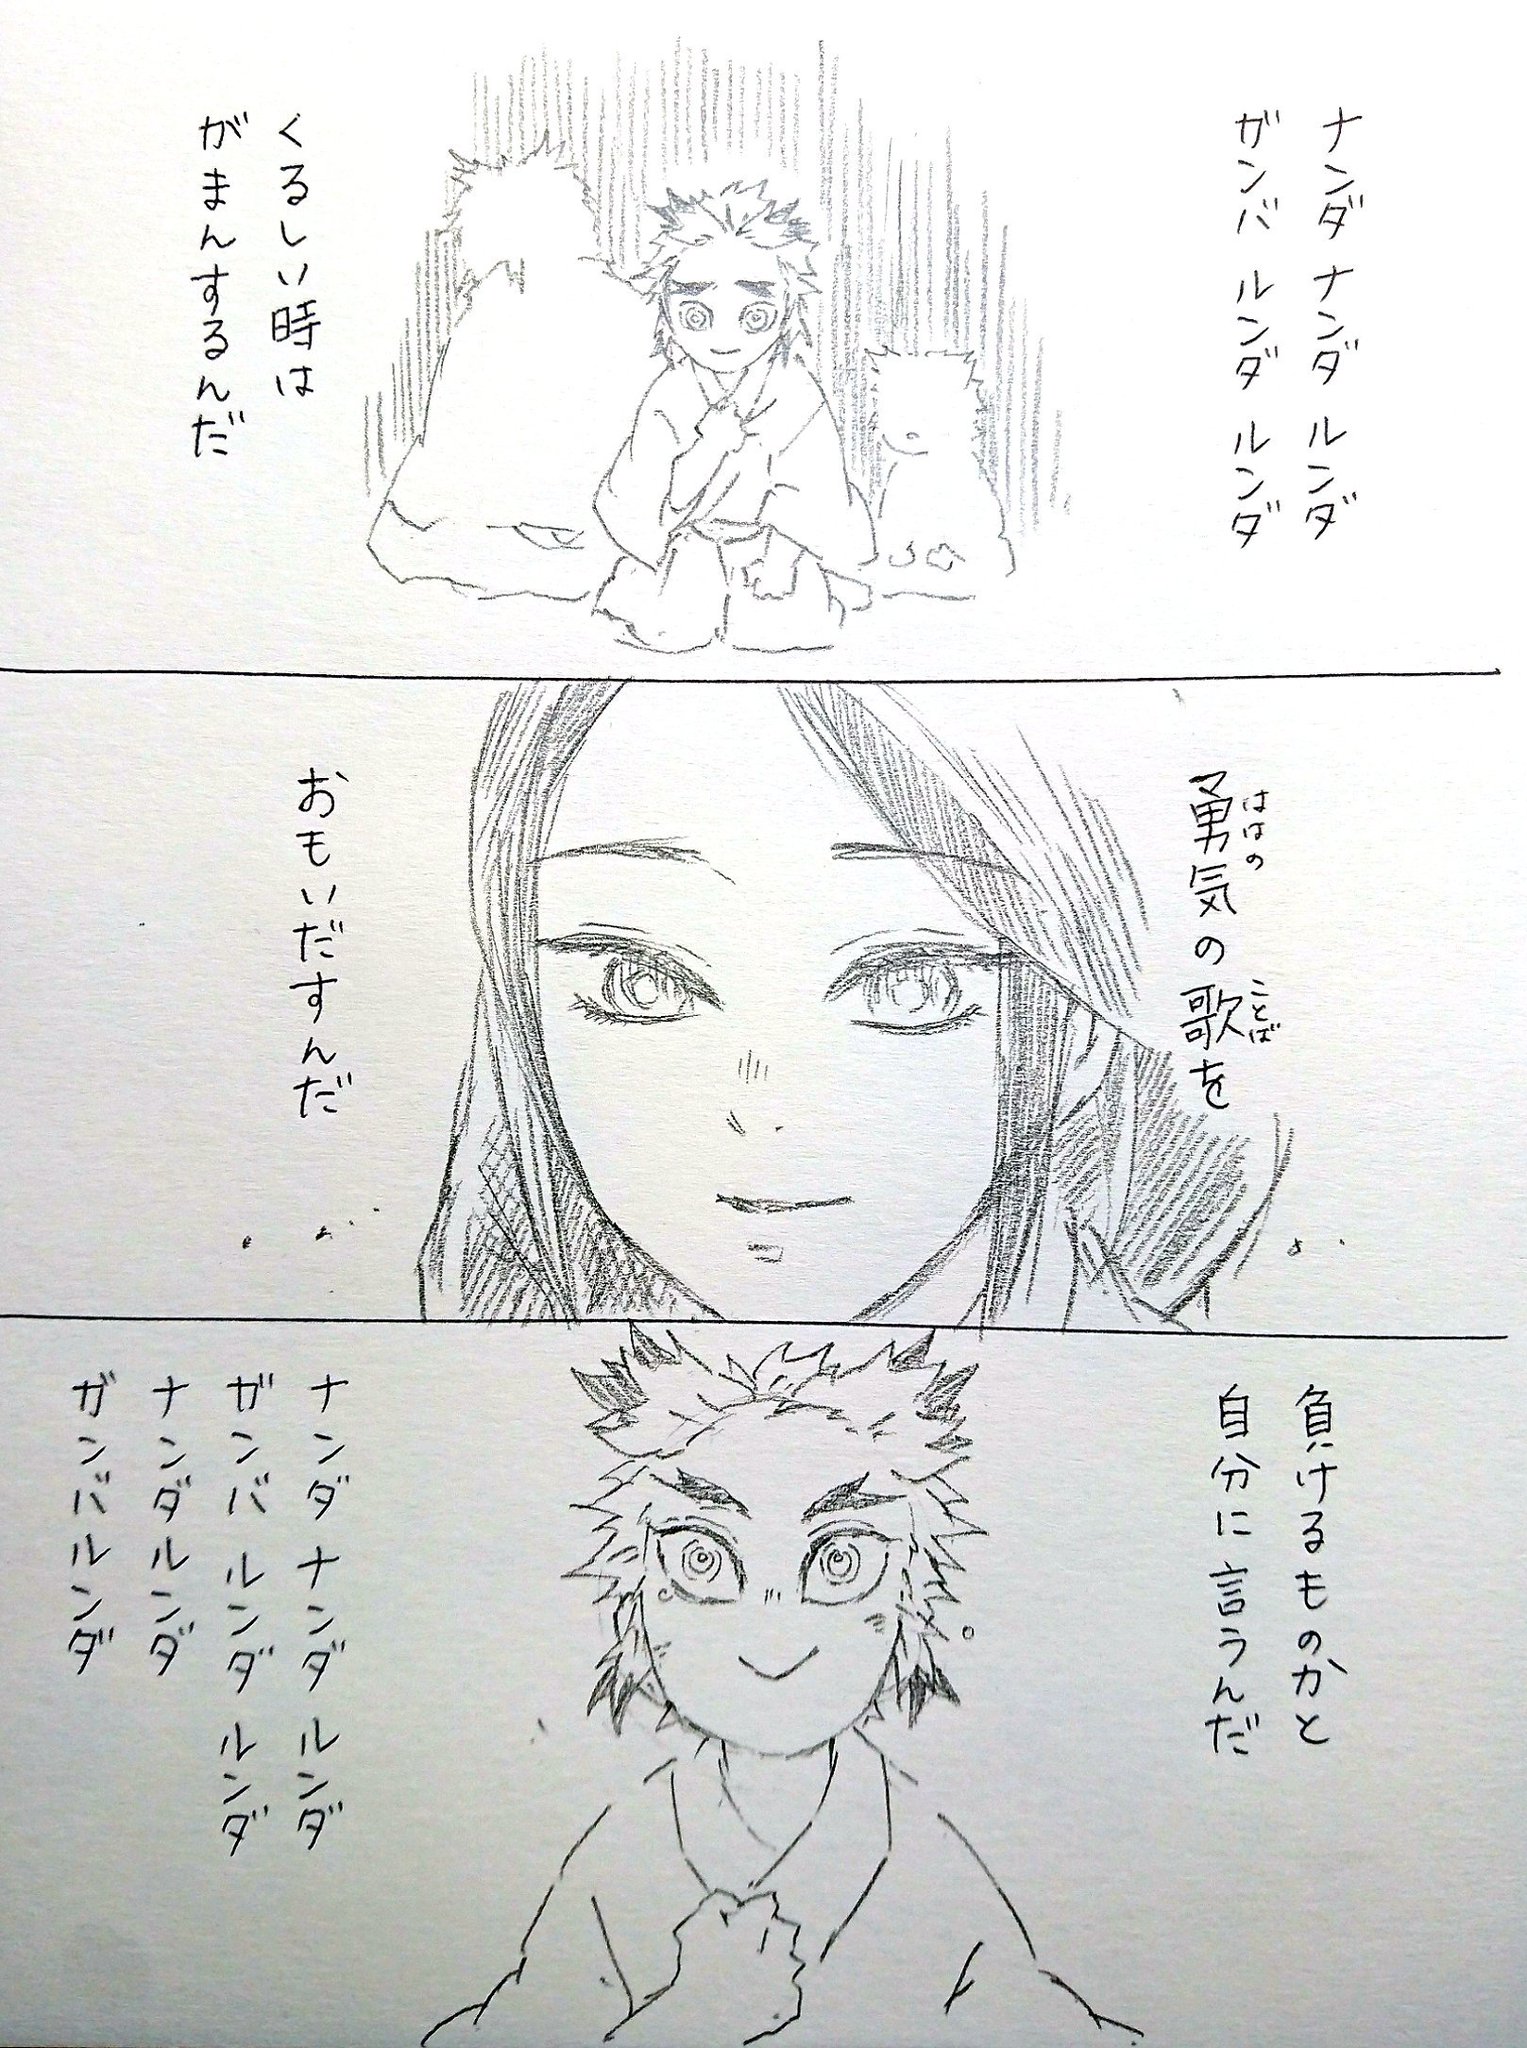 ナンダ ナンダ ルンダ
ガンバ ルンダ ルンダ
くるしい時は
がまんするんだ
勇気の歌を
ははの
ことば
おもいだすんだ
負けるものかと
自分に言うんだ
ナンダ ナンダ ルンダ
ガンバ ルンダ ルンダ
ナンダ ルンダ
ガンバルンダ